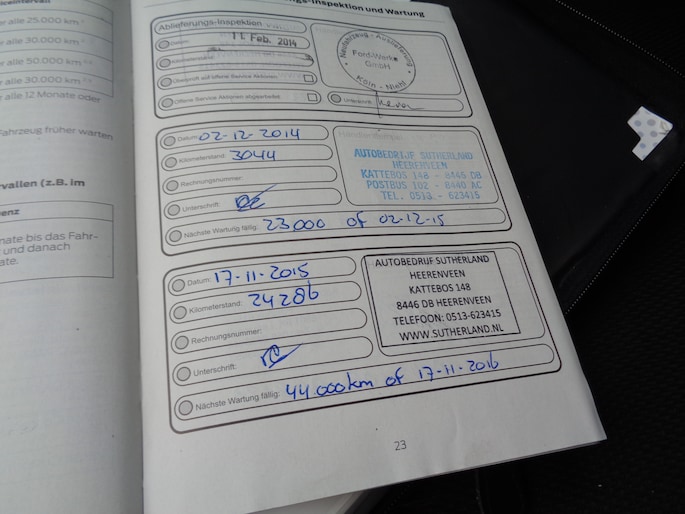 er alle 25.000 km
er alle 30.000 km
er alle 50.000 km
er alle 30.000 km
er alle 12 Monate oder
Fahrzeug früher warten
vallen (z.B. im
enz
nate bis das Fahr-
und danach
ate.
gs-Inspektion und Wartung
Ablieferungs-Inspektion
Datum:
11 Feb. 2014
Kilometerstand:
Überprüft auf offene Service Aktionen
Offene Service Aktionen abgearbeitet
Neufahrzeug - Auslieferung
Ford-Werke
GmbH
Köln - Niehl
Unterschrift:
Datum: 02-12-2014
Kilometerstand: 3044
Rechnungsnummer:
Unterschrift:
Nächste Wartung fällig: 23.000 of 02-12-15
AUTOBEDRIJF SUTHERLAND
HEERENVEEN
KATTEBOS 148 - 8446 DB
POSTBUS 102 - 8440 AC
TEL. 0513 - 623415
Datum: 17-11-2015
Kilometerstand: 24286
Rechnungsnummer:
Unterschrift:
Nächste Wartung fällig: 44.000km of 17-11-2016
AUTOBEDRIJF SUTHERLAND
HEERENVEEN
KATTEBOS 148
8446 DB HEERENVEEN
TELEFOON: 0513-623415
WWW.SUTHERLAND.NL
23